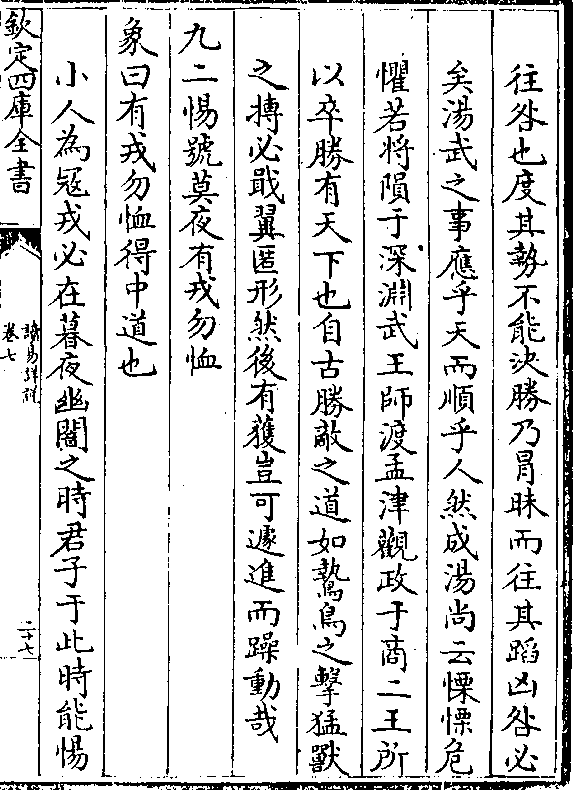 往咎也度其勢不能決勝乃冐昧而往其蹈凶咎必
矣湯武之事應乎天而順乎人然成湯尚云慄慄危
懼若將隕于深淵武王師渡孟津觀政于商二王所
以卒勝有天下也自古勝敵之道如鷙鳥之擊猛獸
之搏必戢翼匿形然後有獲豈可遽進而躁動哉
九二惕號莫夜有戎勿恤
象曰有戎勿恤得中道也
小人為冦戎必在暮夜幽闇之時君子于此時能惕
欽定四庫全書
讀易詳說
卷七
二十七